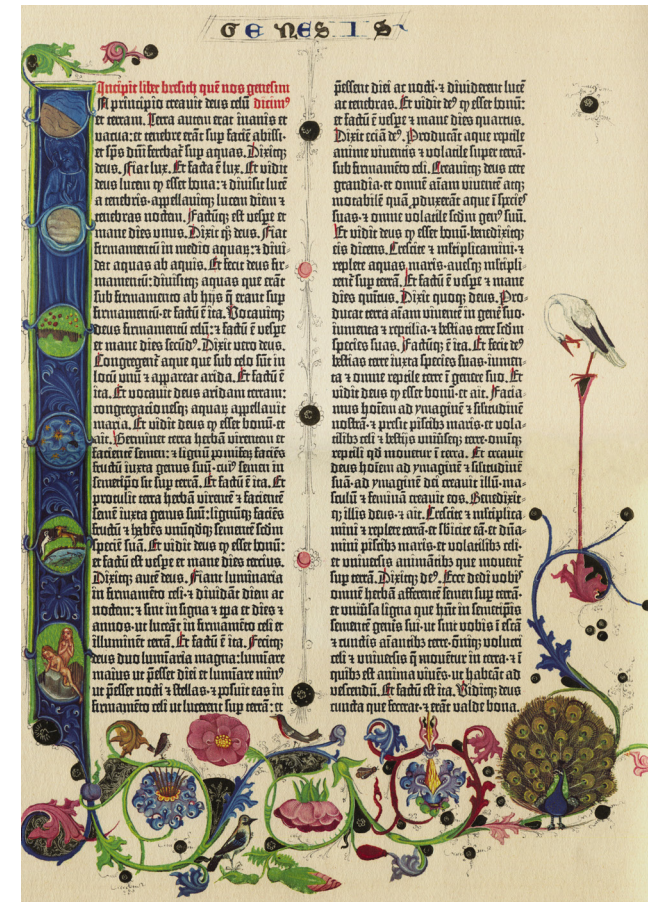 GENESIS
Incipit liber bresith quē nos genesim
In principio creavit deus celū dicim⁹
et terram. Terra autem erat inanis et
vacua: et tenebre erāt sup faciē abissi·
et sp̄s dn̄i ferebat̄ sup aquas. Dixitq;
deus. Fiat lux. Et facta ē lux. Et vidit
deus lucem q̄ esset bona: ⁊ divisit lucē
a tenebris· appellavitq; lucem diem ⁊
tenebras noctem. Factūq; est vespe et
mane dies unus. Dixit q̄; deus. Fiat
firmamentū in medio aquaꝝ: ⁊ divi-
dat aquas ab aquis. Et fecit deus fir-
mamentū: divisitq; aquas que erāt
sub firmamento ab hijs q̄ erant sup
firmamentū· et factū ē ita. Vocavitq;
deus firmamentū celū: ⁊ factū ē vespe
et mane dies secūd⁹. Dixit vero deus.
Congregent̄ aque que sub celo sūt in
locū unū ⁊ appareat arida. Et factū ē
ita. Et vocavit deus aridam terram:
congregacionesq; aquaꝝ appellavit
maria. Et vidit deus q̄ esset bonū· et
ait. Germinet terra herbā virentem et
facientē semen: ⁊ lignū pomiferū faciēs
fructū iuxta genus suū· cui⁹ semen in
semetip̄o sit sup terrā. Et factū ē ita. Et
protulit terra herbā virentē ⁊ facientē
semē iuxta genus suū: lignūq; faciēs
fructū ⁊ habēs unūq̄dq; sementē scdm
speciē suā. Et vidit deus q̄ esset bonū:
et factū est vespe et mane dies tercius.
Dixitq; autē deus. Fiant luminaria
in firmamēto celi· ⁊ dividāt diem ac
noctem: ⁊ sint in signa ⁊ tp̄a et dies ⁊
annos· ut luceāt in firmamēto celi et
illuminēt terrā. Et factū ē ita. Fecitq;
deus duo lumīaria magna: lumīare
maius ut p̄esset diei et lumīare min⁹
ut p̄esset nocti ⁊ stellas· ⁊ posuit eas in
firmamēto celi ut lucerent sup terrā: et
p̄essent diei ac nocti· ⁊ dividerent lucē
ac tenebras. Et vidit de⁹ q̄ esset bonū:
et factū ē vespe ⁊ mane dies quartus.
Dixit eciā de⁹. Producāt aque reptile
anime viventis ⁊ volatile super terrā·
sub firmamēto celi. Creavitq; deus cete
grandia· et omnē aīam viventē atq;
motabilē quā p̄duxerāt aque ī species
suas· ⁊ omne volatile scdm gen⁹ suū.
Et vidit deus q̄ esset bonū· benedixitq;
eis dicens. Crescite ⁊ mltiplicamini· ⁊
replete aquas maris· avesq; mltipli-
cent̄ sup terrā. Et factū ē vespe ⁊ mane
dies quītus. Dixit quoq; deus. Pro-
ducat terra aīam viventē in genē suo·
iumenta ⁊ reptilia· ⁊ bestias terre scdm
species suas. Factūq; ē ita. Et fecit de⁹
bestias terre iuxta species suas· iumen-
ta ⁊ omne reptile terre ī genere suo. Et
vidit deus q̄ esset bonū· et ait. Facia-
mus hoīem ad ymaginē ⁊ silitudinē
nostrā· ⁊ presit piscib⁹ maris· et vola-
tilib⁹ celi ⁊ bestijs univīseq; terre· omniq;
reptili qd movetur ī terra. Et creavit
deus hoīem ad ymaginē ⁊ silitudinē
suā· ad ymaginē dei creavit illū· ma-
sculū ⁊ feminā creavit eos. Benedixit-
q; illis deus· ⁊ ait. Crescite ⁊ mltiplica-
mini ⁊ replete terrā· et sbicite eā· et dn̄a-
mini piscib⁹ maris· et volatilib⁹ celi·
et universis animātib⁹ que moventr̄
sup terrā. Dixitq; de⁹. Ecce dedi vobis
omnē herbā afferentē semen sup terrā·
et univīsa ligna que hn̄t in semetip̄is
sementē genīs sui· ut sint vobis ī escā
⁊ cunctis aīantib⁹ terre· oīniq; volucri
celi ⁊ universis q̄ movētur in terra· ⁊ ī
quib⁹ est anima vivēs· ut habeāt ad
vescendū. Et factū est ita. Viditq; deus
cuncta que fecerat· ⁊ erāt valde bona.